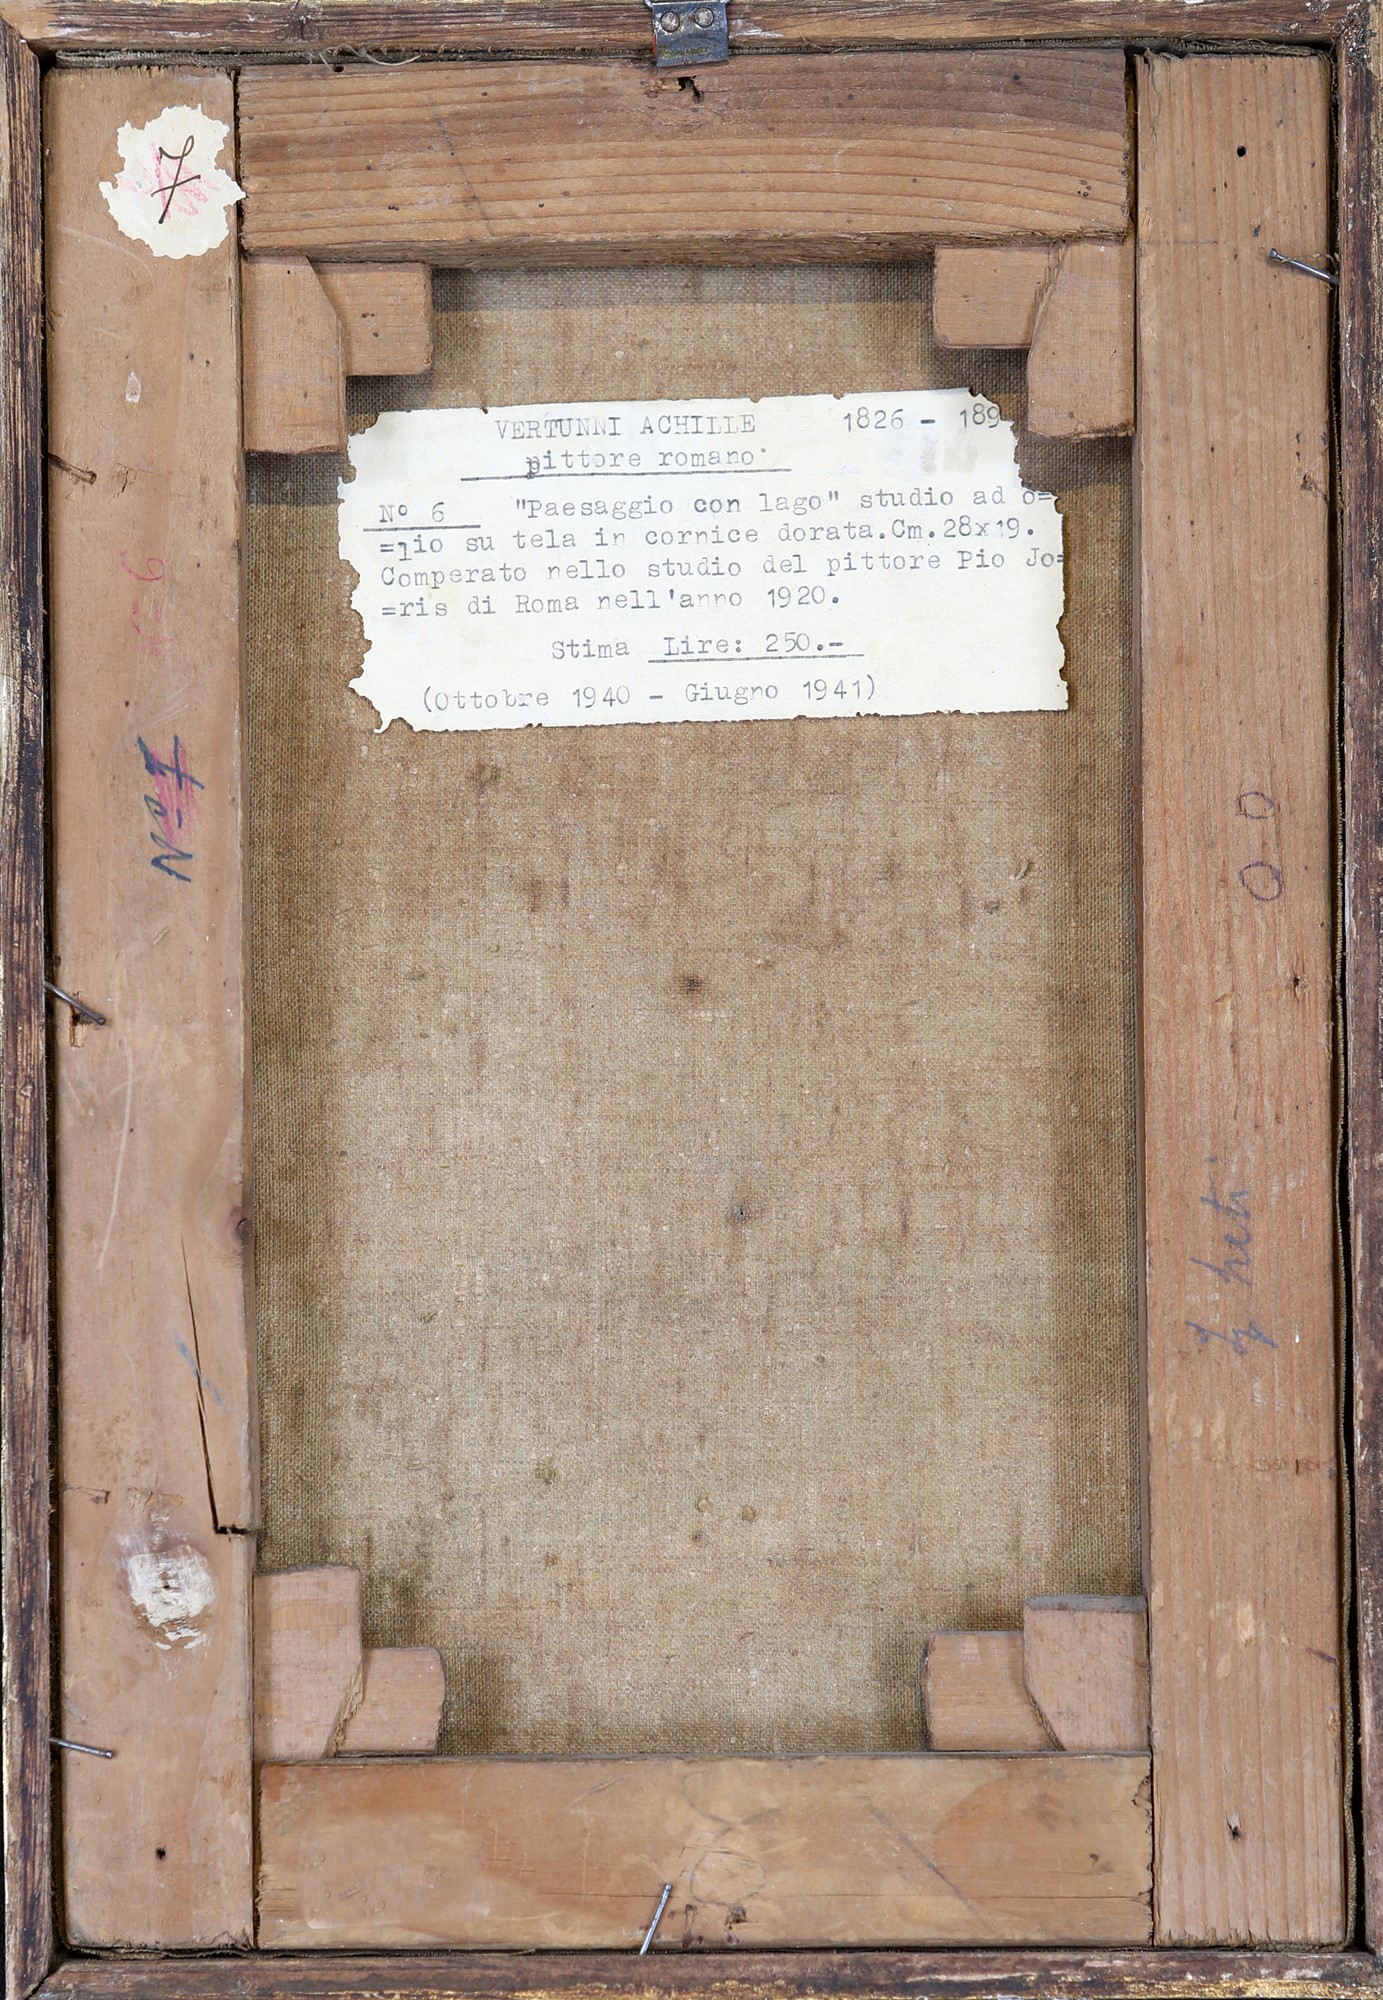 7
VERTUNNI ACHILLE 1826 - 189
pittore romano
Nº 6 "Paesaggio con lago" studio ad o=
=lio su tela in cornice dorata.Cm.28x19.
Comperato nello studio del pittore Pio Jo=
=ris di Roma nell'anno 1920.
Stima Lire: 250.-
(Ottobre 1940 - Giugno 1941)
Nº 7